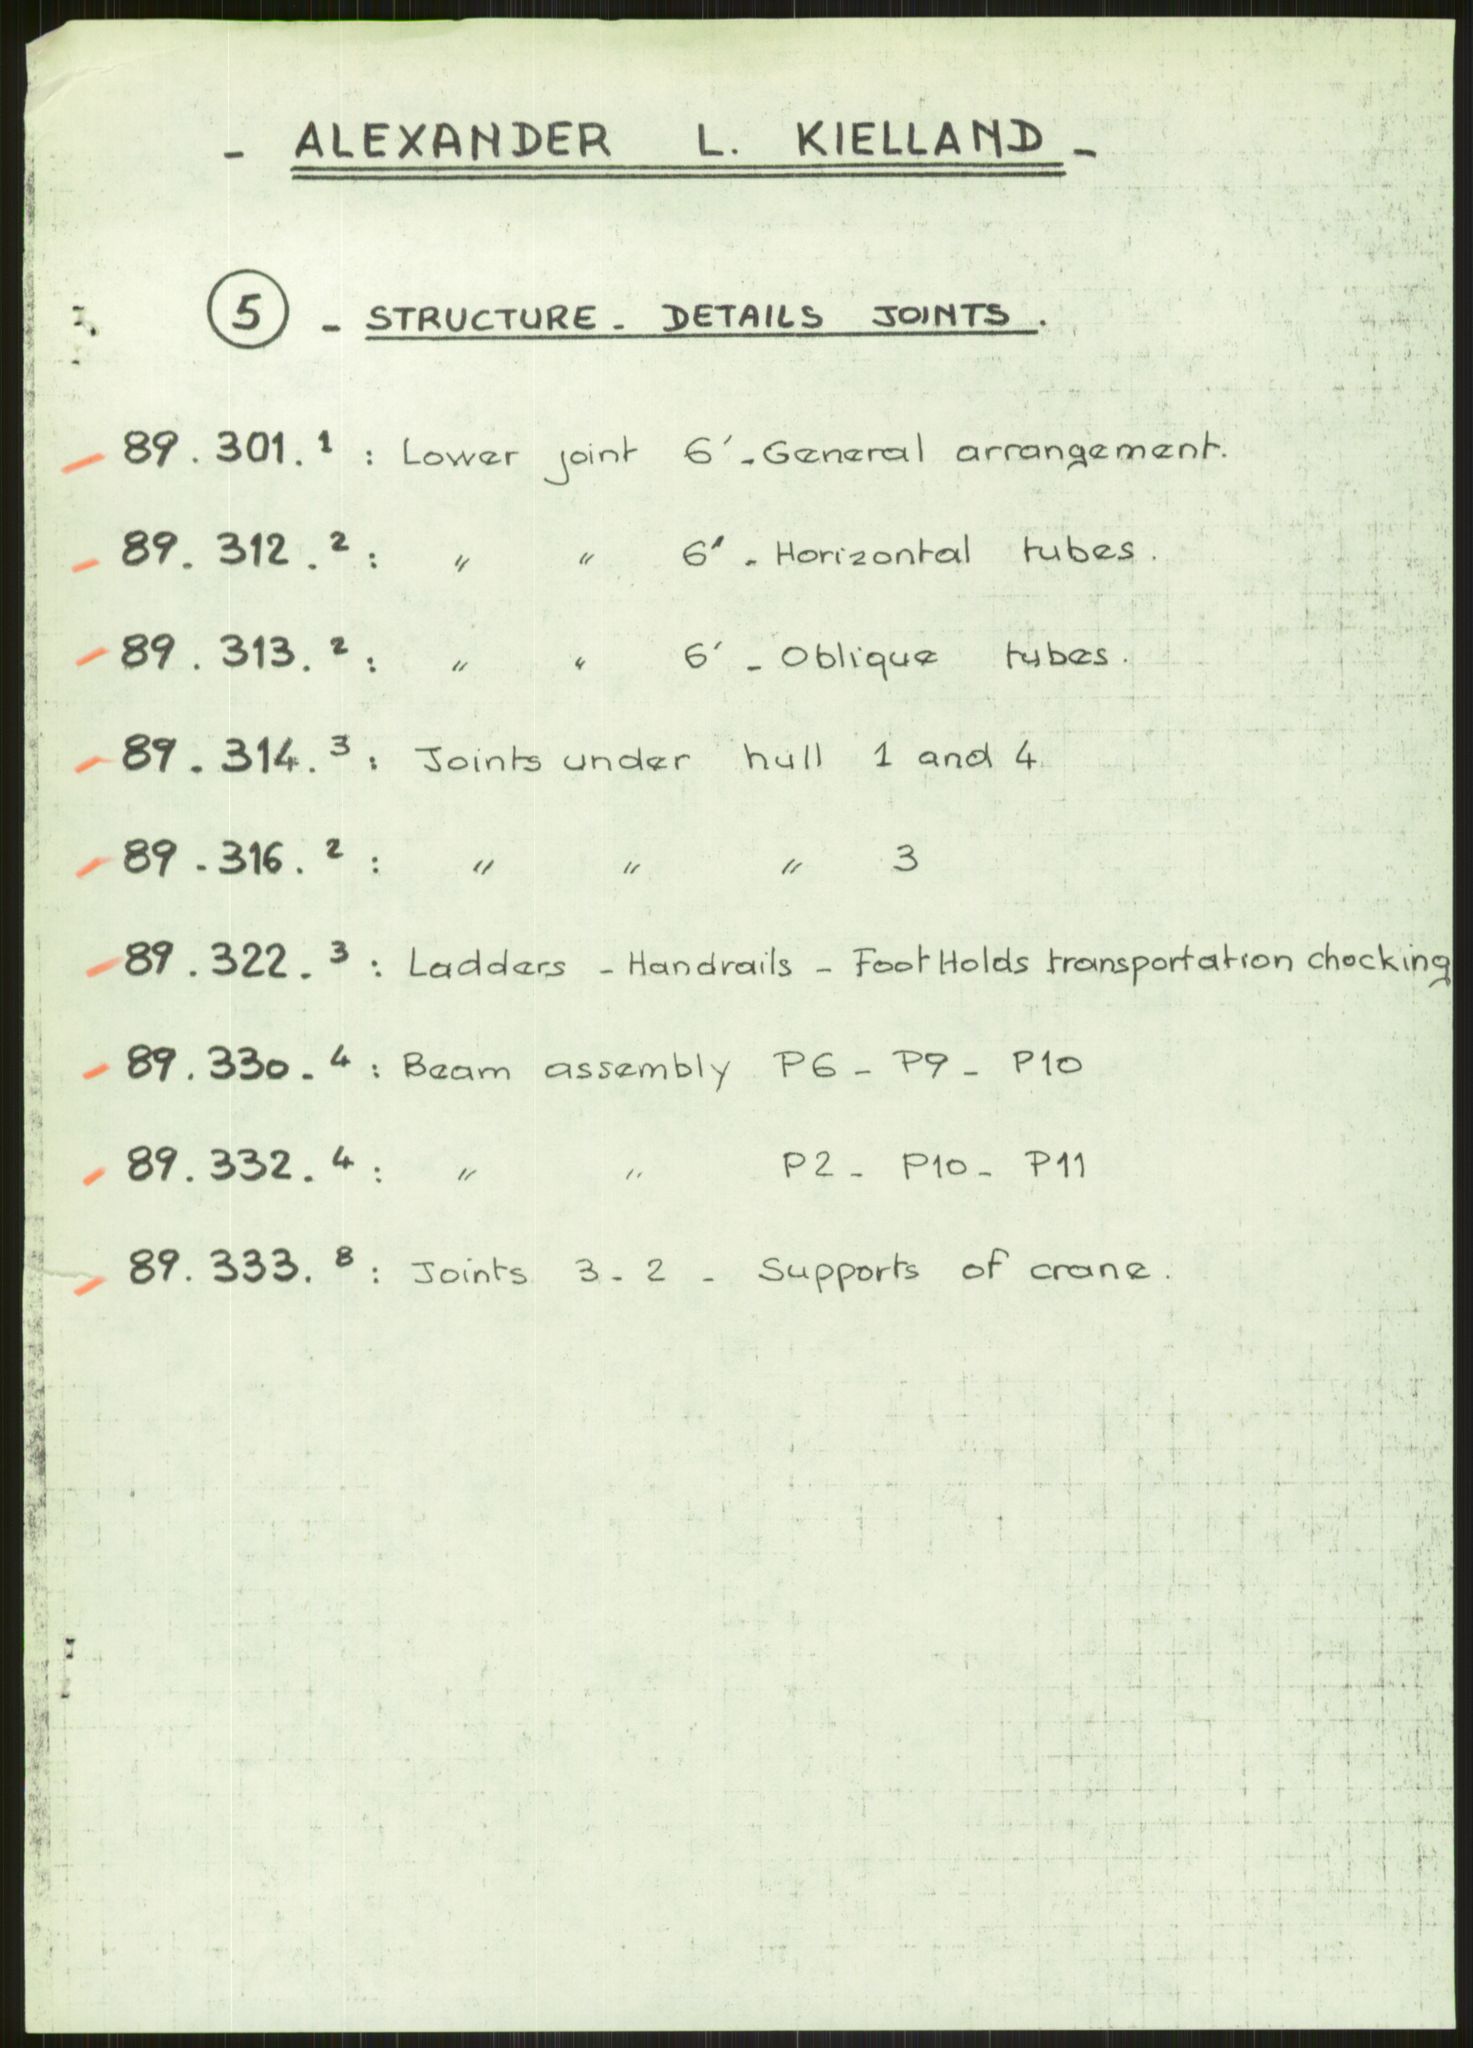 - ALEXANDER L. KIELLAND -
5 - STRUCTURE - DETAILS JOINTS.
89.301.¹ : Lower joint 6' - General arrangement.
89.312.² : " " 6' - Horizontal tubes.
89.313.² : " " 6' - Oblique tubes.
89.314.³ : Joints under hull 1 and 4
89.316.² : " " " 3
89.322.³ : Ladders - Handrails - FootHolds transportation chocking
89.330.⁴ : Beam assembly P6 - P9 - P10
89.332.⁴ : " " P2 - P10 - P11
89.333.⁸ : Joints 3 - 2 - Supports of crane.